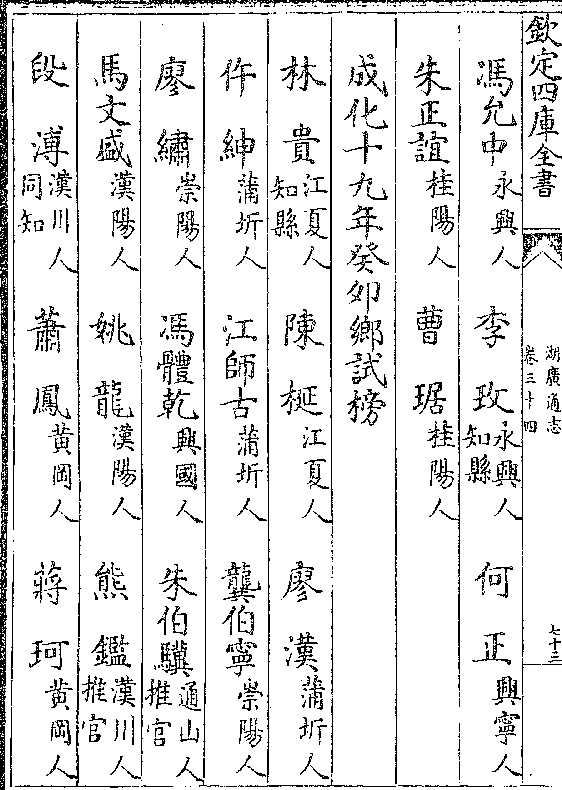 欽定四庫全書
湖廣通志
卷三十四
七十三
馮允中永興人 李玫永興人知縣 何正興寧人
朱正誼桂陽人 曹琚桂陽人
成化十九年癸卯鄉試榜
林貴江夏人知縣 陳梴江夏人 廖漢蒲圻人
仵紳蒲圻人 江師古蒲圻人 龔伯寧崇陽人
廖繡崇陽人 馮體乾興國人 朱伯驥通山人推官
馬文盛漢陽人 姚龍漢陽人 熊鑑漢川人推官
段漙漢川人同知 蕭鳳黃岡人 蔣珂黃岡人